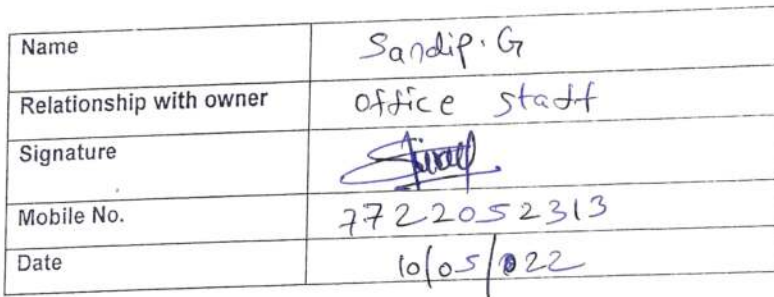 Name Sandip. G
Relationship with owner office staff
Signature
Mobile No. 7722052313
Date 10/05/022